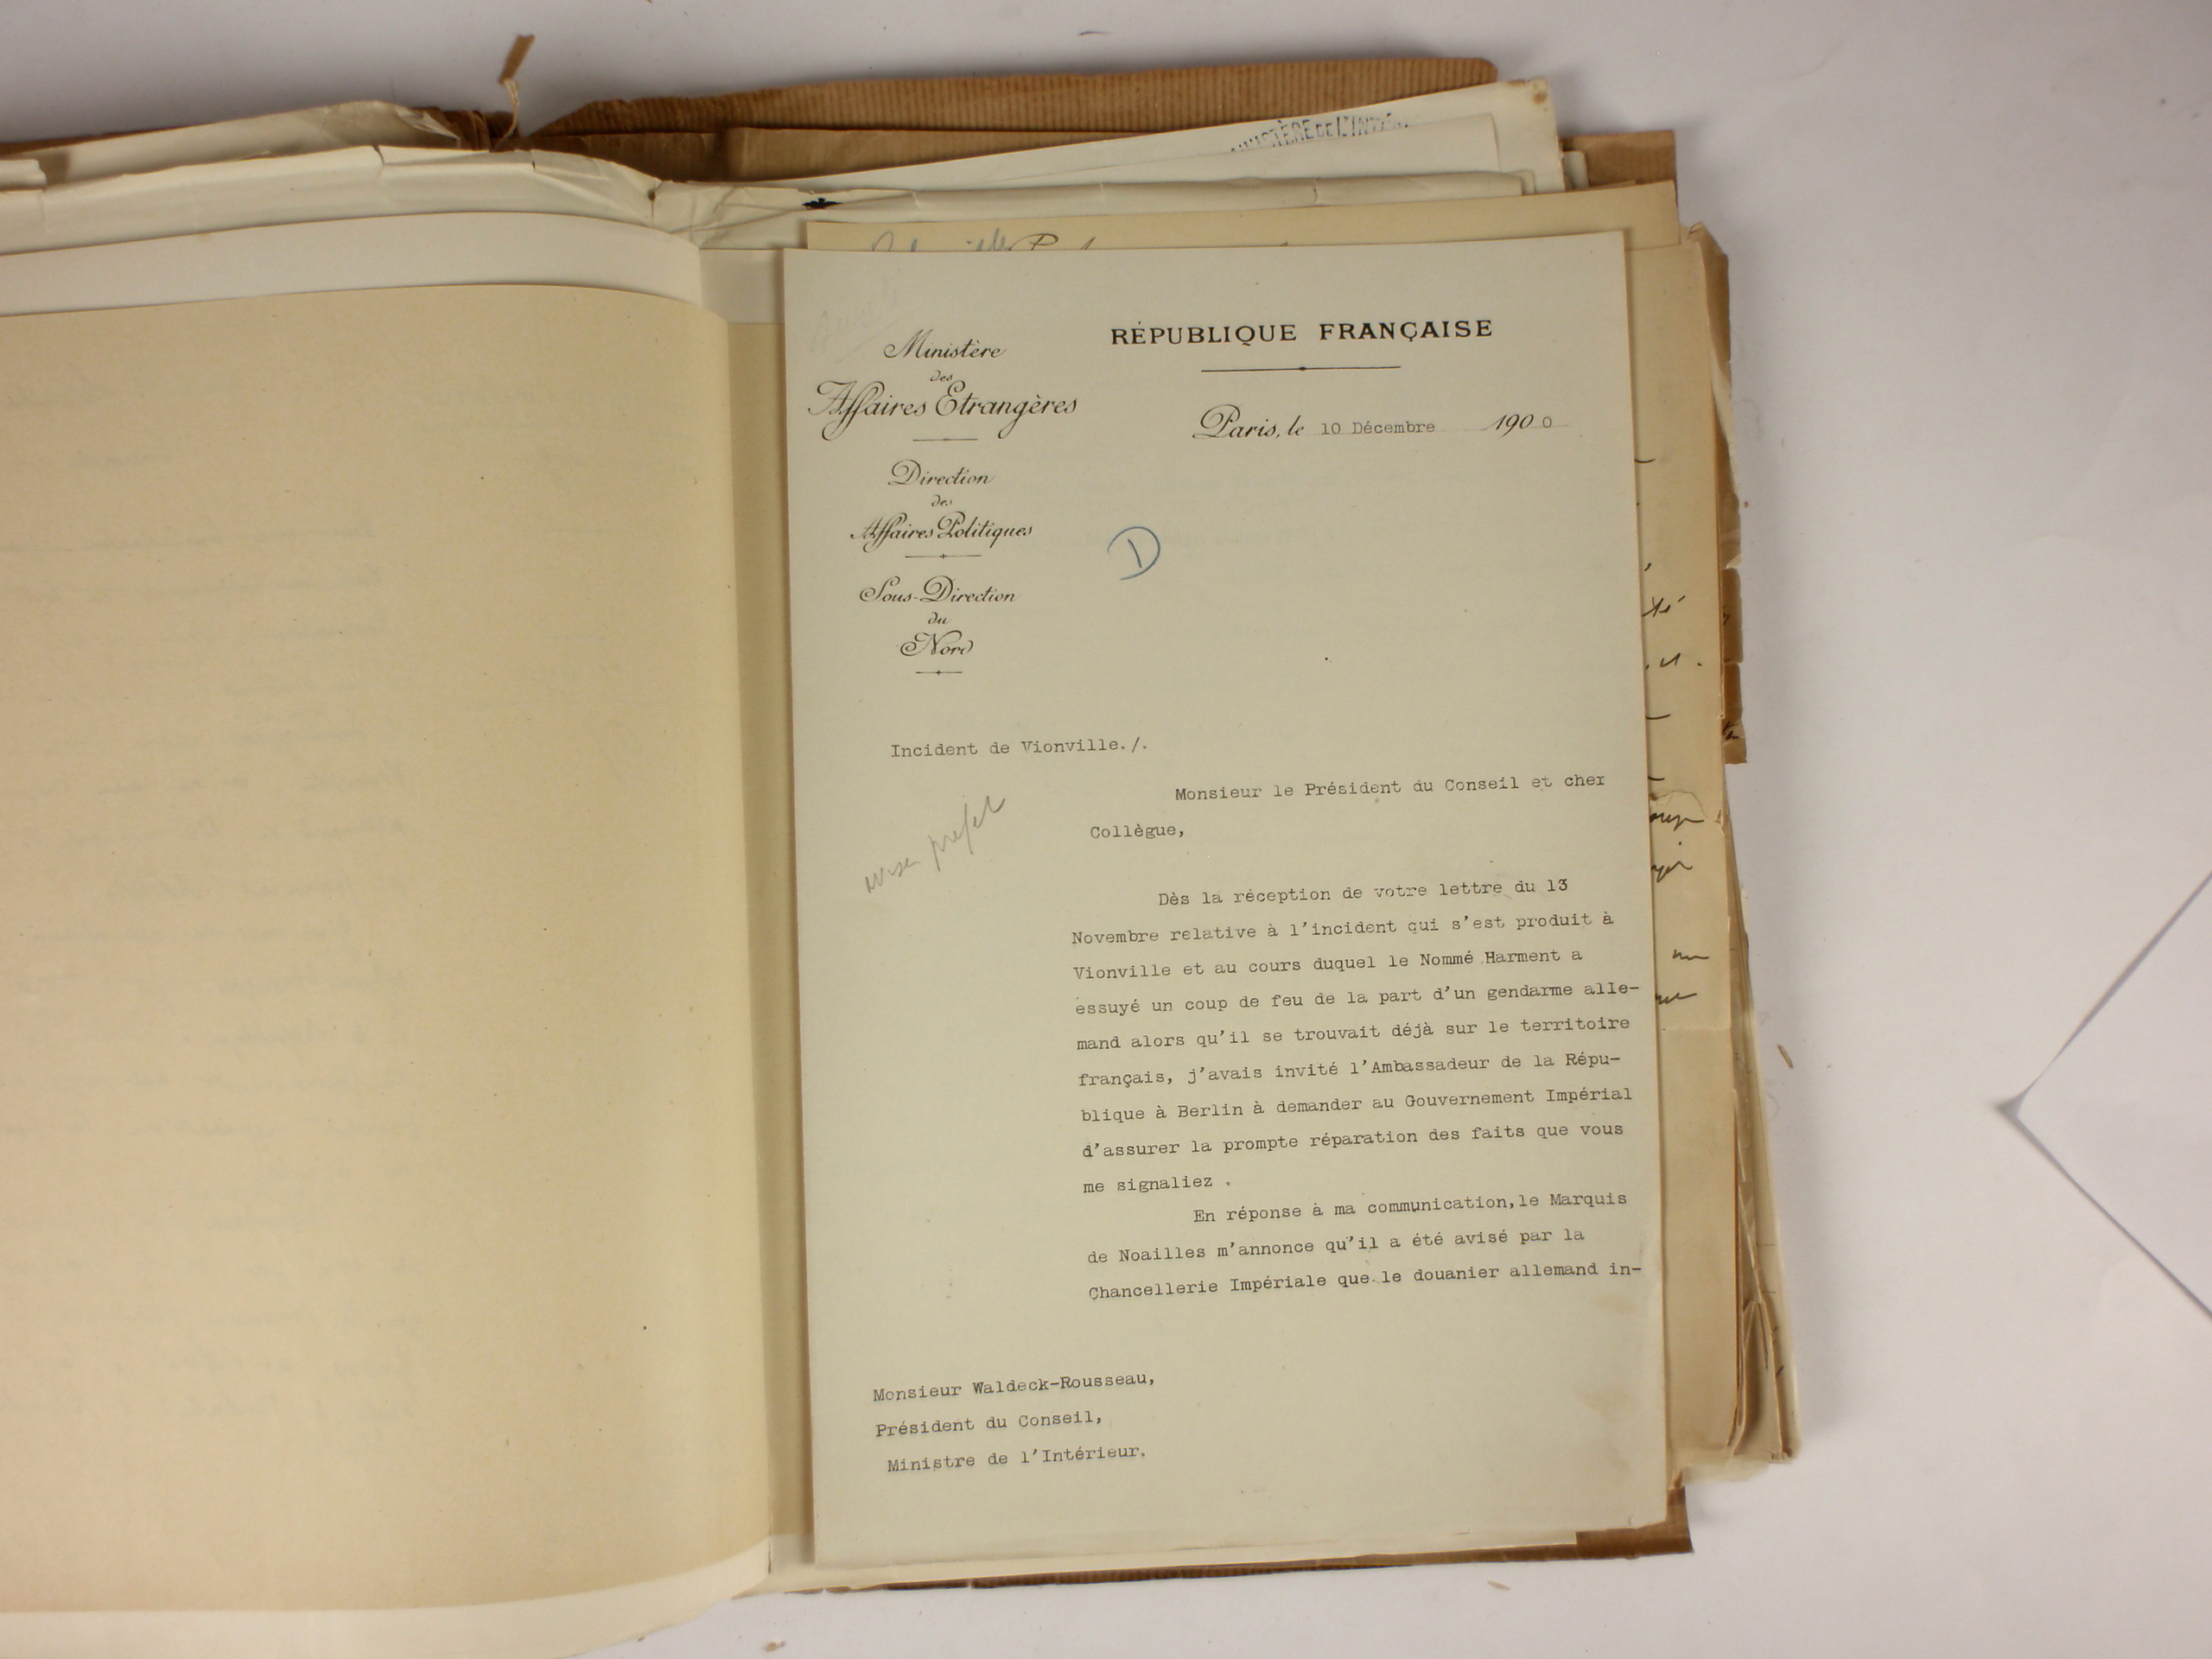 MINISTÈRE DE L'INTÉ
RÉPUBLIQUE FRANÇAISE
Ministère
des
Affaires Etrangères
Paris, le 10 Décembre 1900
Direction
des
Affaires Politiques
D
Sous-Direction
du
Nord
Incident de Vionville./.
Monsieur le Président du Conseil et cher
Collègue,
préfet
Dès la réception de votre lettre du 13
Novembre relative à l'incident qui s'est produit à
Vionville et au cours duquel le Nommé Harment a
essuyé un coup de feu de la part d'un gendarme alle-
mand alors qu'il se trouvait déjà sur le territoire
français, j'avais invité l'Ambassadeur de la Répu-
blique à Berlin à demander au Gouvernement Impérial
d'assurer la prompte réparation des faits que vous
me signaliez .
En réponse à ma communication, le Marquis
de Noailles m'annonce qu'il a été avisé par la
Chancellerie Impériale que le douanier allemand in-
Monsieur Waldeck-Rousseau,
Président du Conseil,
Ministre de l'Intérieur.